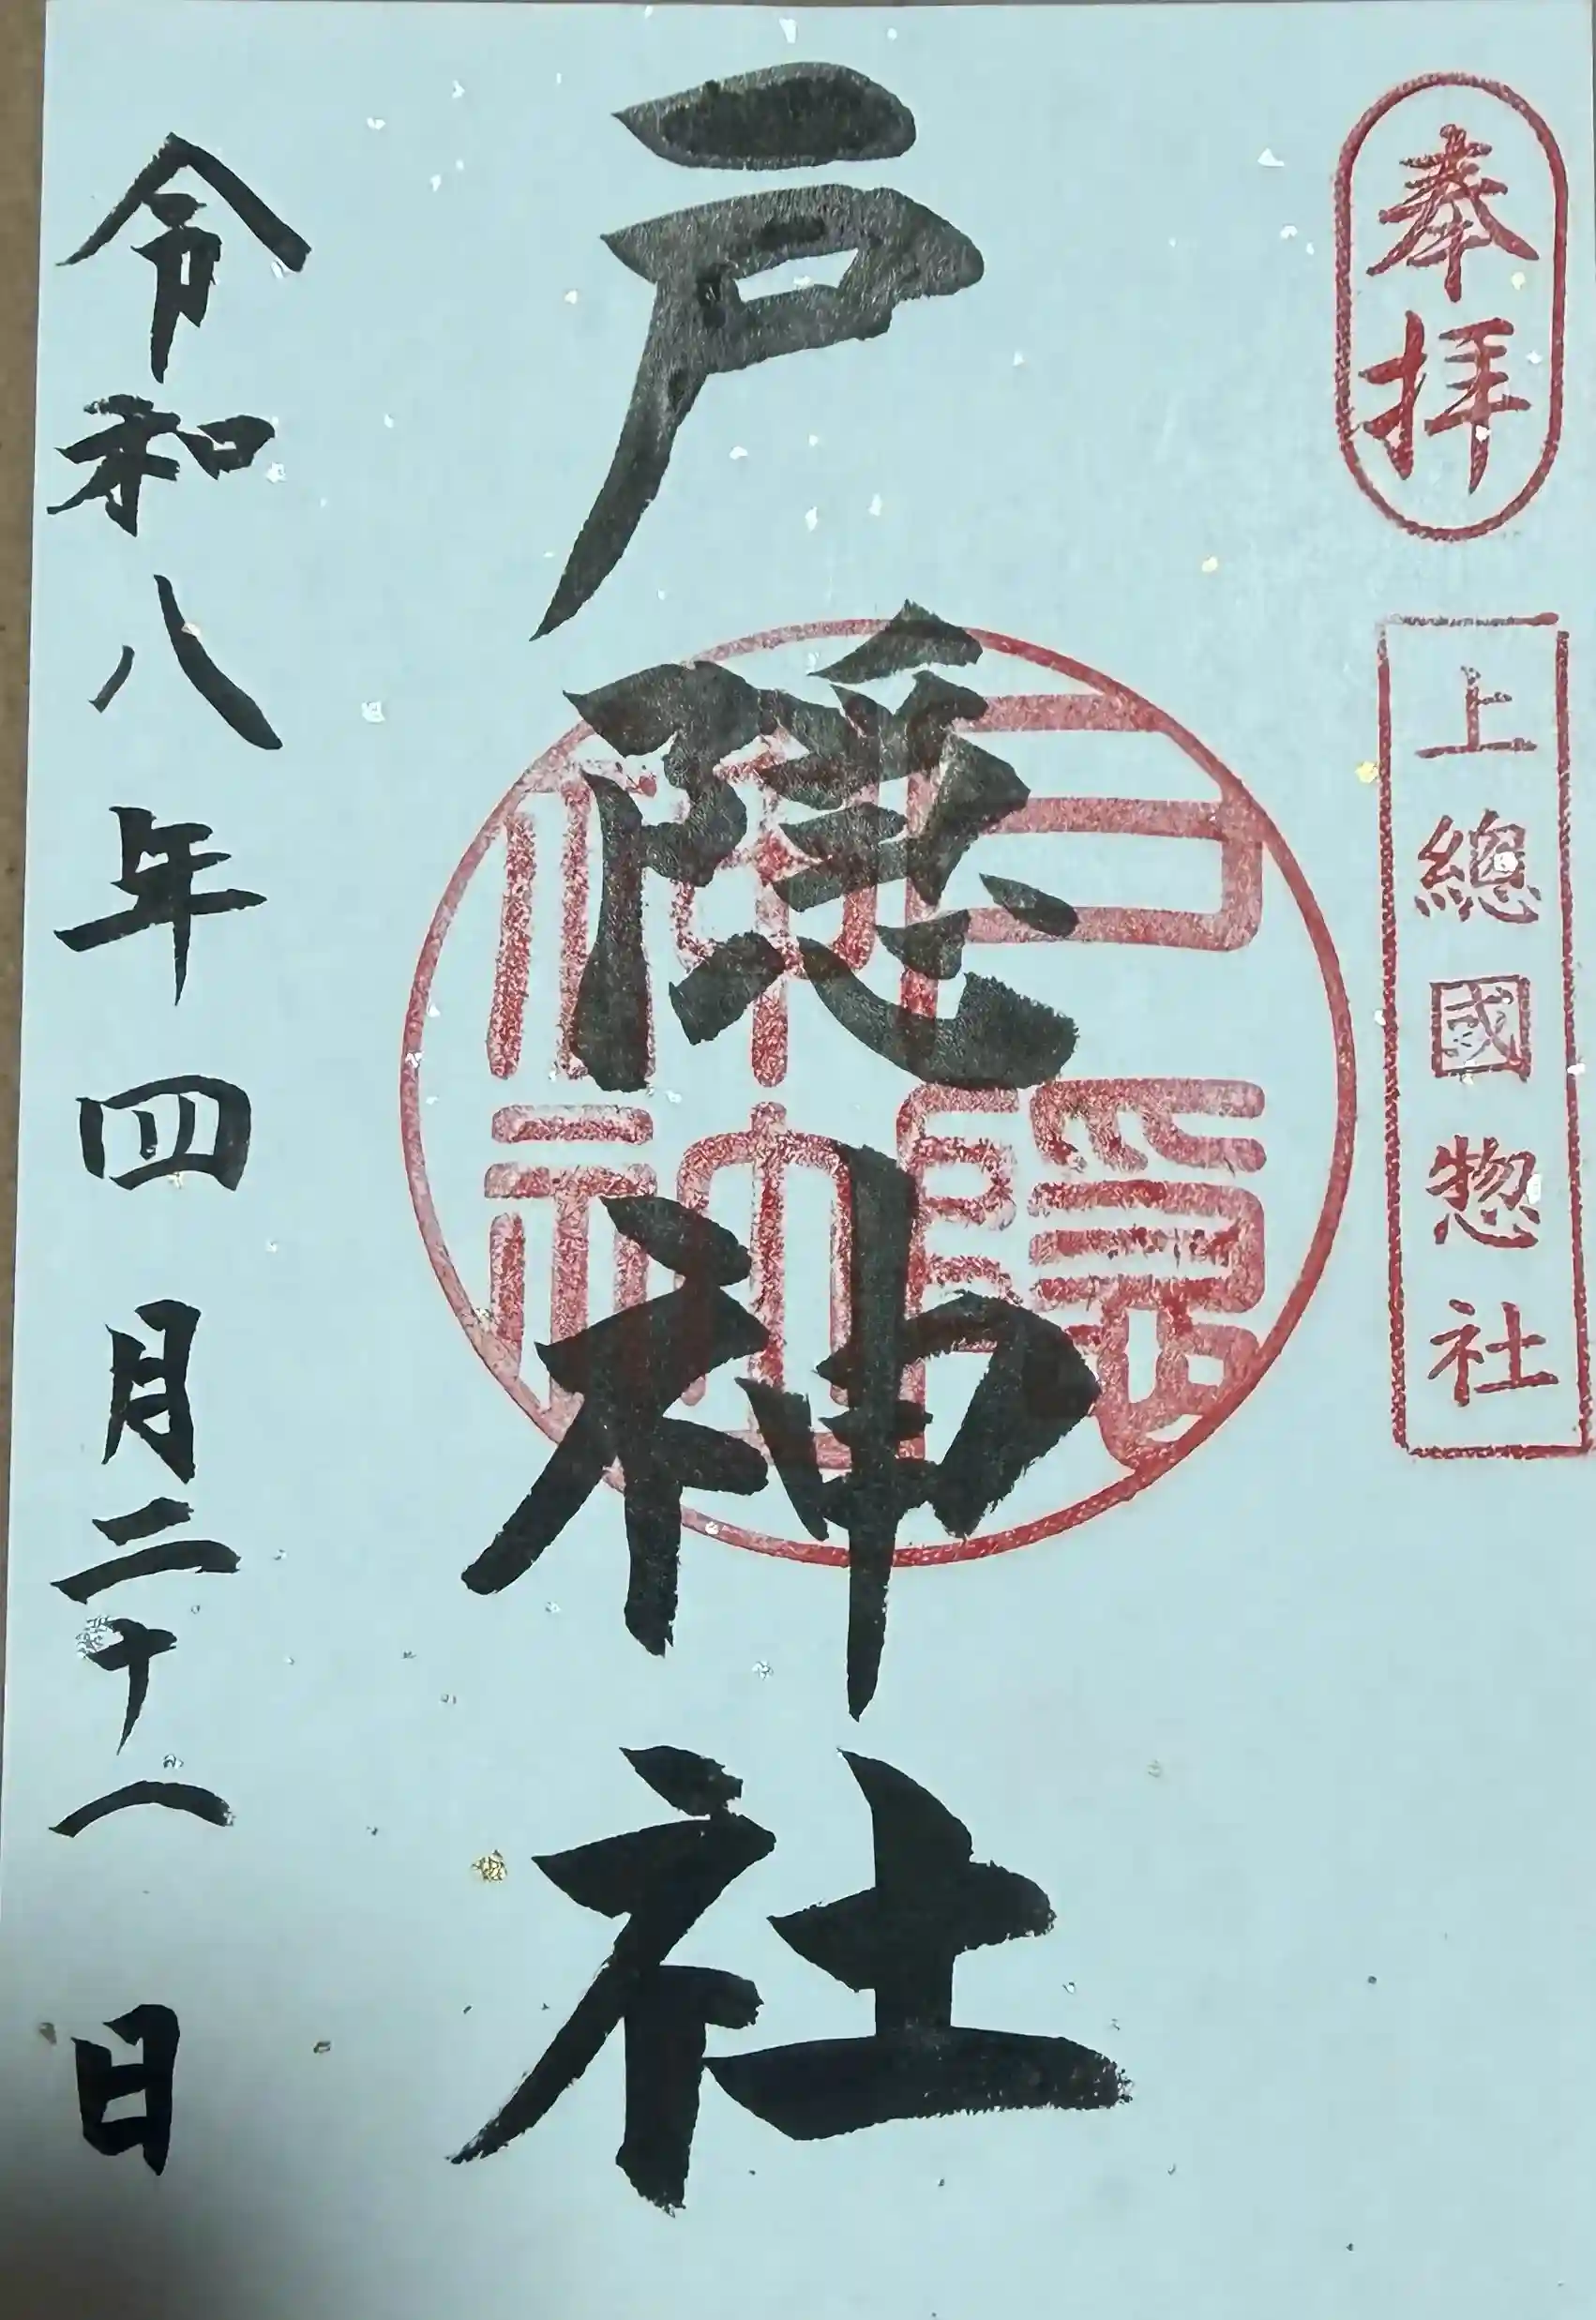 奉拝
上總國惣社
戸隠神社
戸隠神社
令和八年四月二十一日